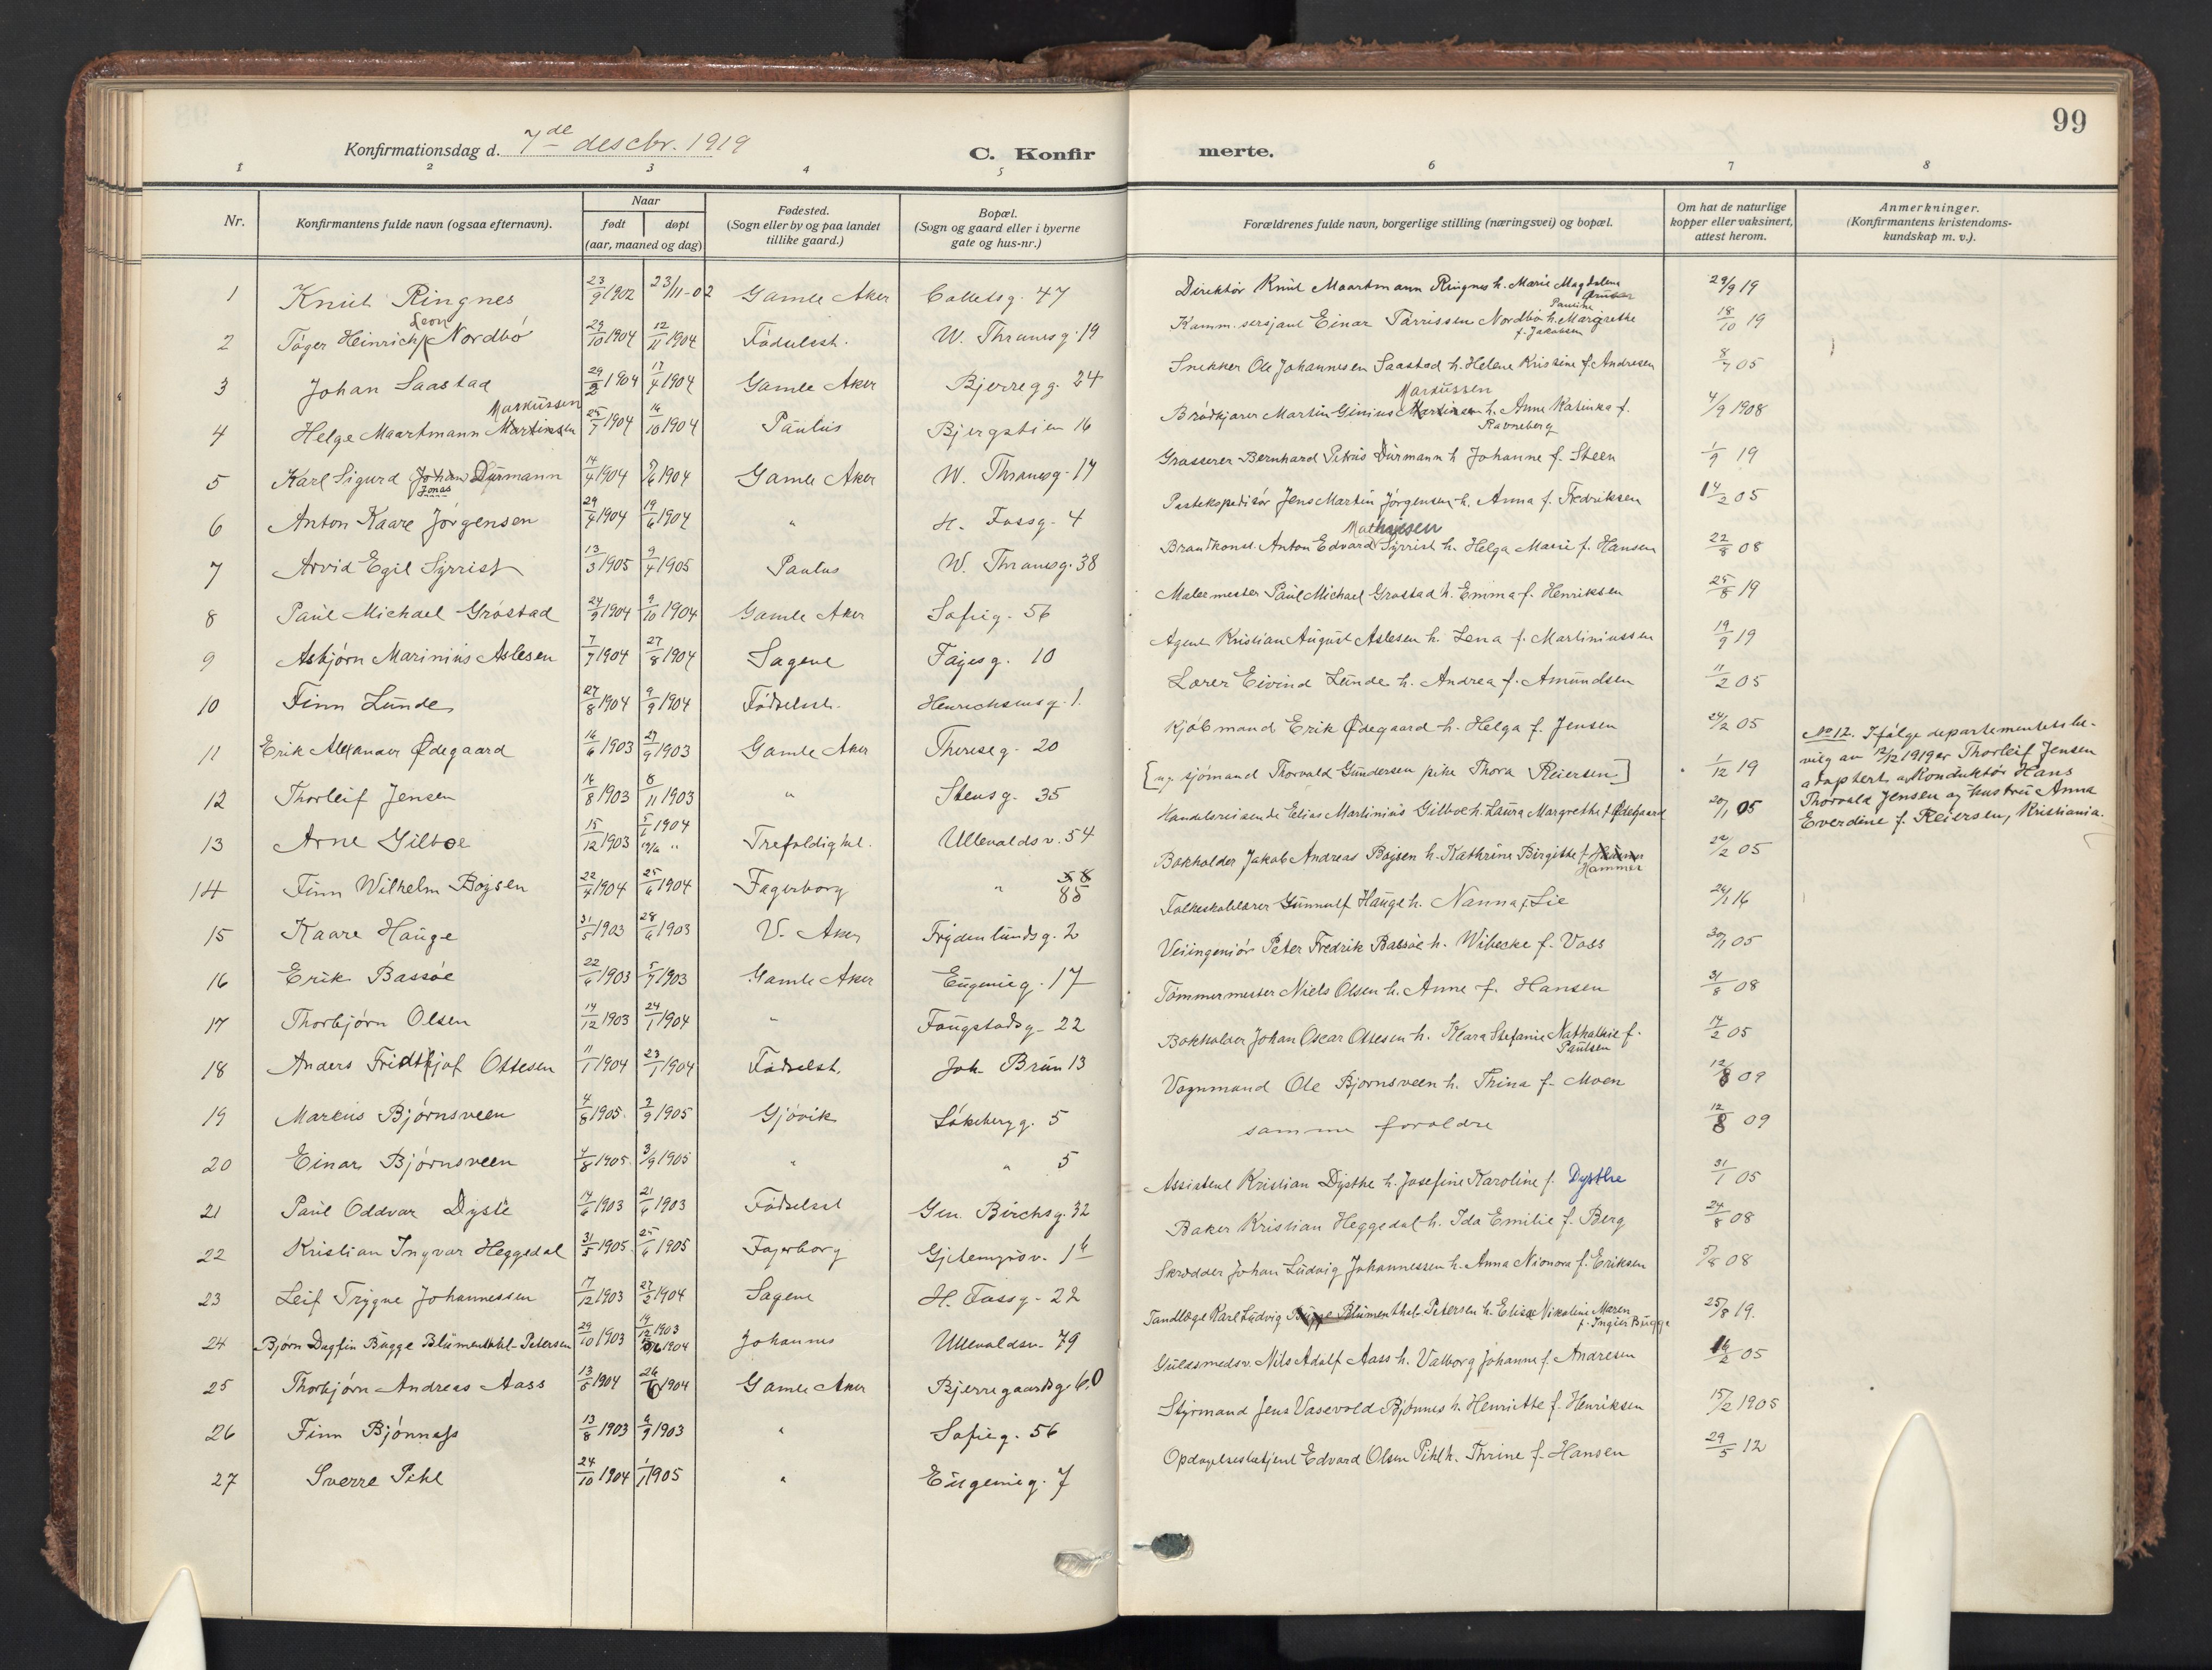 99
Konfirmationsdag d. 7de desebr. 1919
C. Konfirmerte.
1 2 3 4 5 6 7 8
Nr. | Konfirmantens fulde navn (ogsaa efternavn). | Naar født | døpt (aar, maaned og dag) | Fødested. (Sogn eller by og paa landet tillike gaard.) | Bopæl. (Sogn og gaard eller i byerne gate og hus-nr.) | Forældrenes fulde navn, borgerlige stilling (næringsvei) og bopæl. | Om hat de naturlige kopper eller vaksinert, attest herom. | Anmerkninger. (Konfirmantens kristendoms-kundskap m. v.).
1 Knut Ringnes 23/9 1902 23/11-02 Gamle Aker Colletsg. 47 Direktør Knut Maartmann Ringnes h. Marie Magdalena 29/9 19
2 Heinrich Leon Nordbö 29/10 1904 12/11 1904 Fødselsst. W. Thranesg. 19 Einar Nordbö h. Pauline Margrethe f. Jakobsen 18/10 19
3 Johan Saastad 29/2 1904 17/4 1904 Gamle Aker Bjerregg. 24 Snekker Ole Johannesen Saastad h. Helene Kristine f. Andresen 8/7 05
4 Helge Maartmann Martinsen Markussen 25/7 1904 16/10 1904 Paulus Bjergstien 16 Brødkjører Martin Ginius Martinsen Markussen h. Anne Katinka f. Ravneberg 4/9 1908
5 Karl Sigurd Johan Jonas Dürmann 14/4 1904 1904 Gamle Aker W. Thranesg. 17 Grosserer Bernhard Petrus Dürmann h Johanne f. Steen 1/9 19
6 Anton Kaare Jörgensen 29/4 1904 19/6 1904 " H. Fossg. 4 Postekspeditör Jens Martin Jörgensen h. Anna f. Fredriksen 14/2 05
7 Arvid Egil Syrrist 13/3 1905 9/4 1905 Paulus W. Thranesg. 38 Brandkonst. Anton Edvard Mathisen Syrrist h. Helga Marie f. Hansen 22/8 08
8 Paul Michael Gröstad 24/9 1904 9/10 1904 Gamle Aker Sofieg. 56 Malermester Paul Michael Gröstad h. Emma f. Henriksen 25/8 19
9 Asbjørn Marinius Aslesen 7/7 1904 27/8 1904 Sagene Fayesg. 10 Agent Kristian August Aslesen h. Lena f. Martiniussen 19/9 19
10 Finn Lunde 27/8 1904 9/9 1904 Fødselsst. Henrichsensg. 1. Lærer Eivind Lunde h. Andrea f. Amundsen 11/2 05
11 Erik Alexander Ødegaard 16/6 1903 27/9 1903 Gamle Aker Thereseg. 20 Kjöbmand Erik Ødegaard h. Helga f. Jensen 24/2 05
12 Thorleif Jensen 16/8 1903 8/11 1903 " Stensg. 35 [u. sjömand Thorvald Gundersen pike Thora Reiersen] 1/12 19
No 12. Ifölge departementets be-
vilg av 12/12 1919 er Thorleif Jensen
adoptert av Konduktör Hans
Thorvald Jensen og hustru Anna
Everdine f. Reiersen, Kristiania.
13 Arne Gilboe 15/12 1903 1904 Trefoldighet. Ullevaldsv. 54 Handelsreisende Elias Martinius Gilboe h. Laura Margrethe f. Ødegaard 20/1 05
14 Finn Wilhelm Bojsen 22/4 1904 25/6 1904 Fagerborg " 58 85 Bokholder Jakob Andreas Bojsen h. Kathrine Birgitte f. Hammer 22/2 05
15 Kaare Hauge 31/5 1903 28/6 1903 V. Aker Frydenlundsg. 2 Folkeskolelærer Gunnulf Hauge h. Nanna f. Lie 26/1 16
16 Erik Bassøe 22/4 1903 5/7 1903 Gamle Aker Eugenieg. 17 Veiingeniör Peter Fredrik Bassøe h. Wibecke f. Voss 30/1 05
17 Thorbjörn Olsen 14/12 1903 24/1 1904 " Faugstadsg. 22 Tömmermester Niels Olsen h. Anne f. Hansen 31/8 08
18 Anders Fridtjof Ottesen 11/1 1904 23/1 1904 Fødselsst. Joh. Brun 13 Bokholder Johan Oscar Ottesen h. Klara Stefanie Nathalie f. Paulsen 14/2 05
19 Markus Björnsveen 4/8 1905 3/9 1905 Gjövik Løkkebergg. 5 Vognmand Ole Björnsveen h. Thina f. Moen 12/8 09
20 Einar Björnsveen 4/8 1905 3/9 1905 " " 5 samme forældre 12/8 09
21 Paul Oddvar Dyste 14/6 1903 21/6 1903 Fødselsst Gen. Birchsg. 32 Assistent Kristian Dysthe h. Josefine Karoline f. Dysthe 31/1 05
22 Kristian Ingvar Heggedal 31/5 1905 25/6 1905 Fagerborg Gjetemyrsv. 1b Baker Kristian Heggedal h. Ida Emilie f. Berg 24/8 08
23 Leif Trygve Johannessen 7/12 1903 27/2 1904 Sagene H. Fossg. 22 Skrædder Johan Ludvig Johannessen h. Anna Nionora f. Eriksen 5/8 08
24 Bjørn Dagfin Bugge Blumenthal-Petersen 29/10 1903 14/12 1903 1904 Johannes Ullevaldsv. 79 Tandlæge Karl Ludvig Bugge Blumenthal Petersen h. Elise Nikoline Maren f. Ingier Bugge 25/8 19.
25 Thorbjørn Andreas Aass 13/5 1904 26/6 1904 Gamle Aker Bjerregaardsg. 60 Guldsmedsv. Nils Adolf Aass h. Valborg Johanne f. Andresen 16/2 05
26 Finn Bjönness 13/8 1903 6/9 1903 " Sofieg. 56 Styrmand Jens Vasevold Bjönnes h. Henriette f. Henriksen 15/2 1905
27 Sverre Pihl 24/10 1904 1/1 1905 " Eugenieg. 7 Opdagelsesbetjent Edvard Olsen Pihl h. Thrine f. Hansen 29/5 12